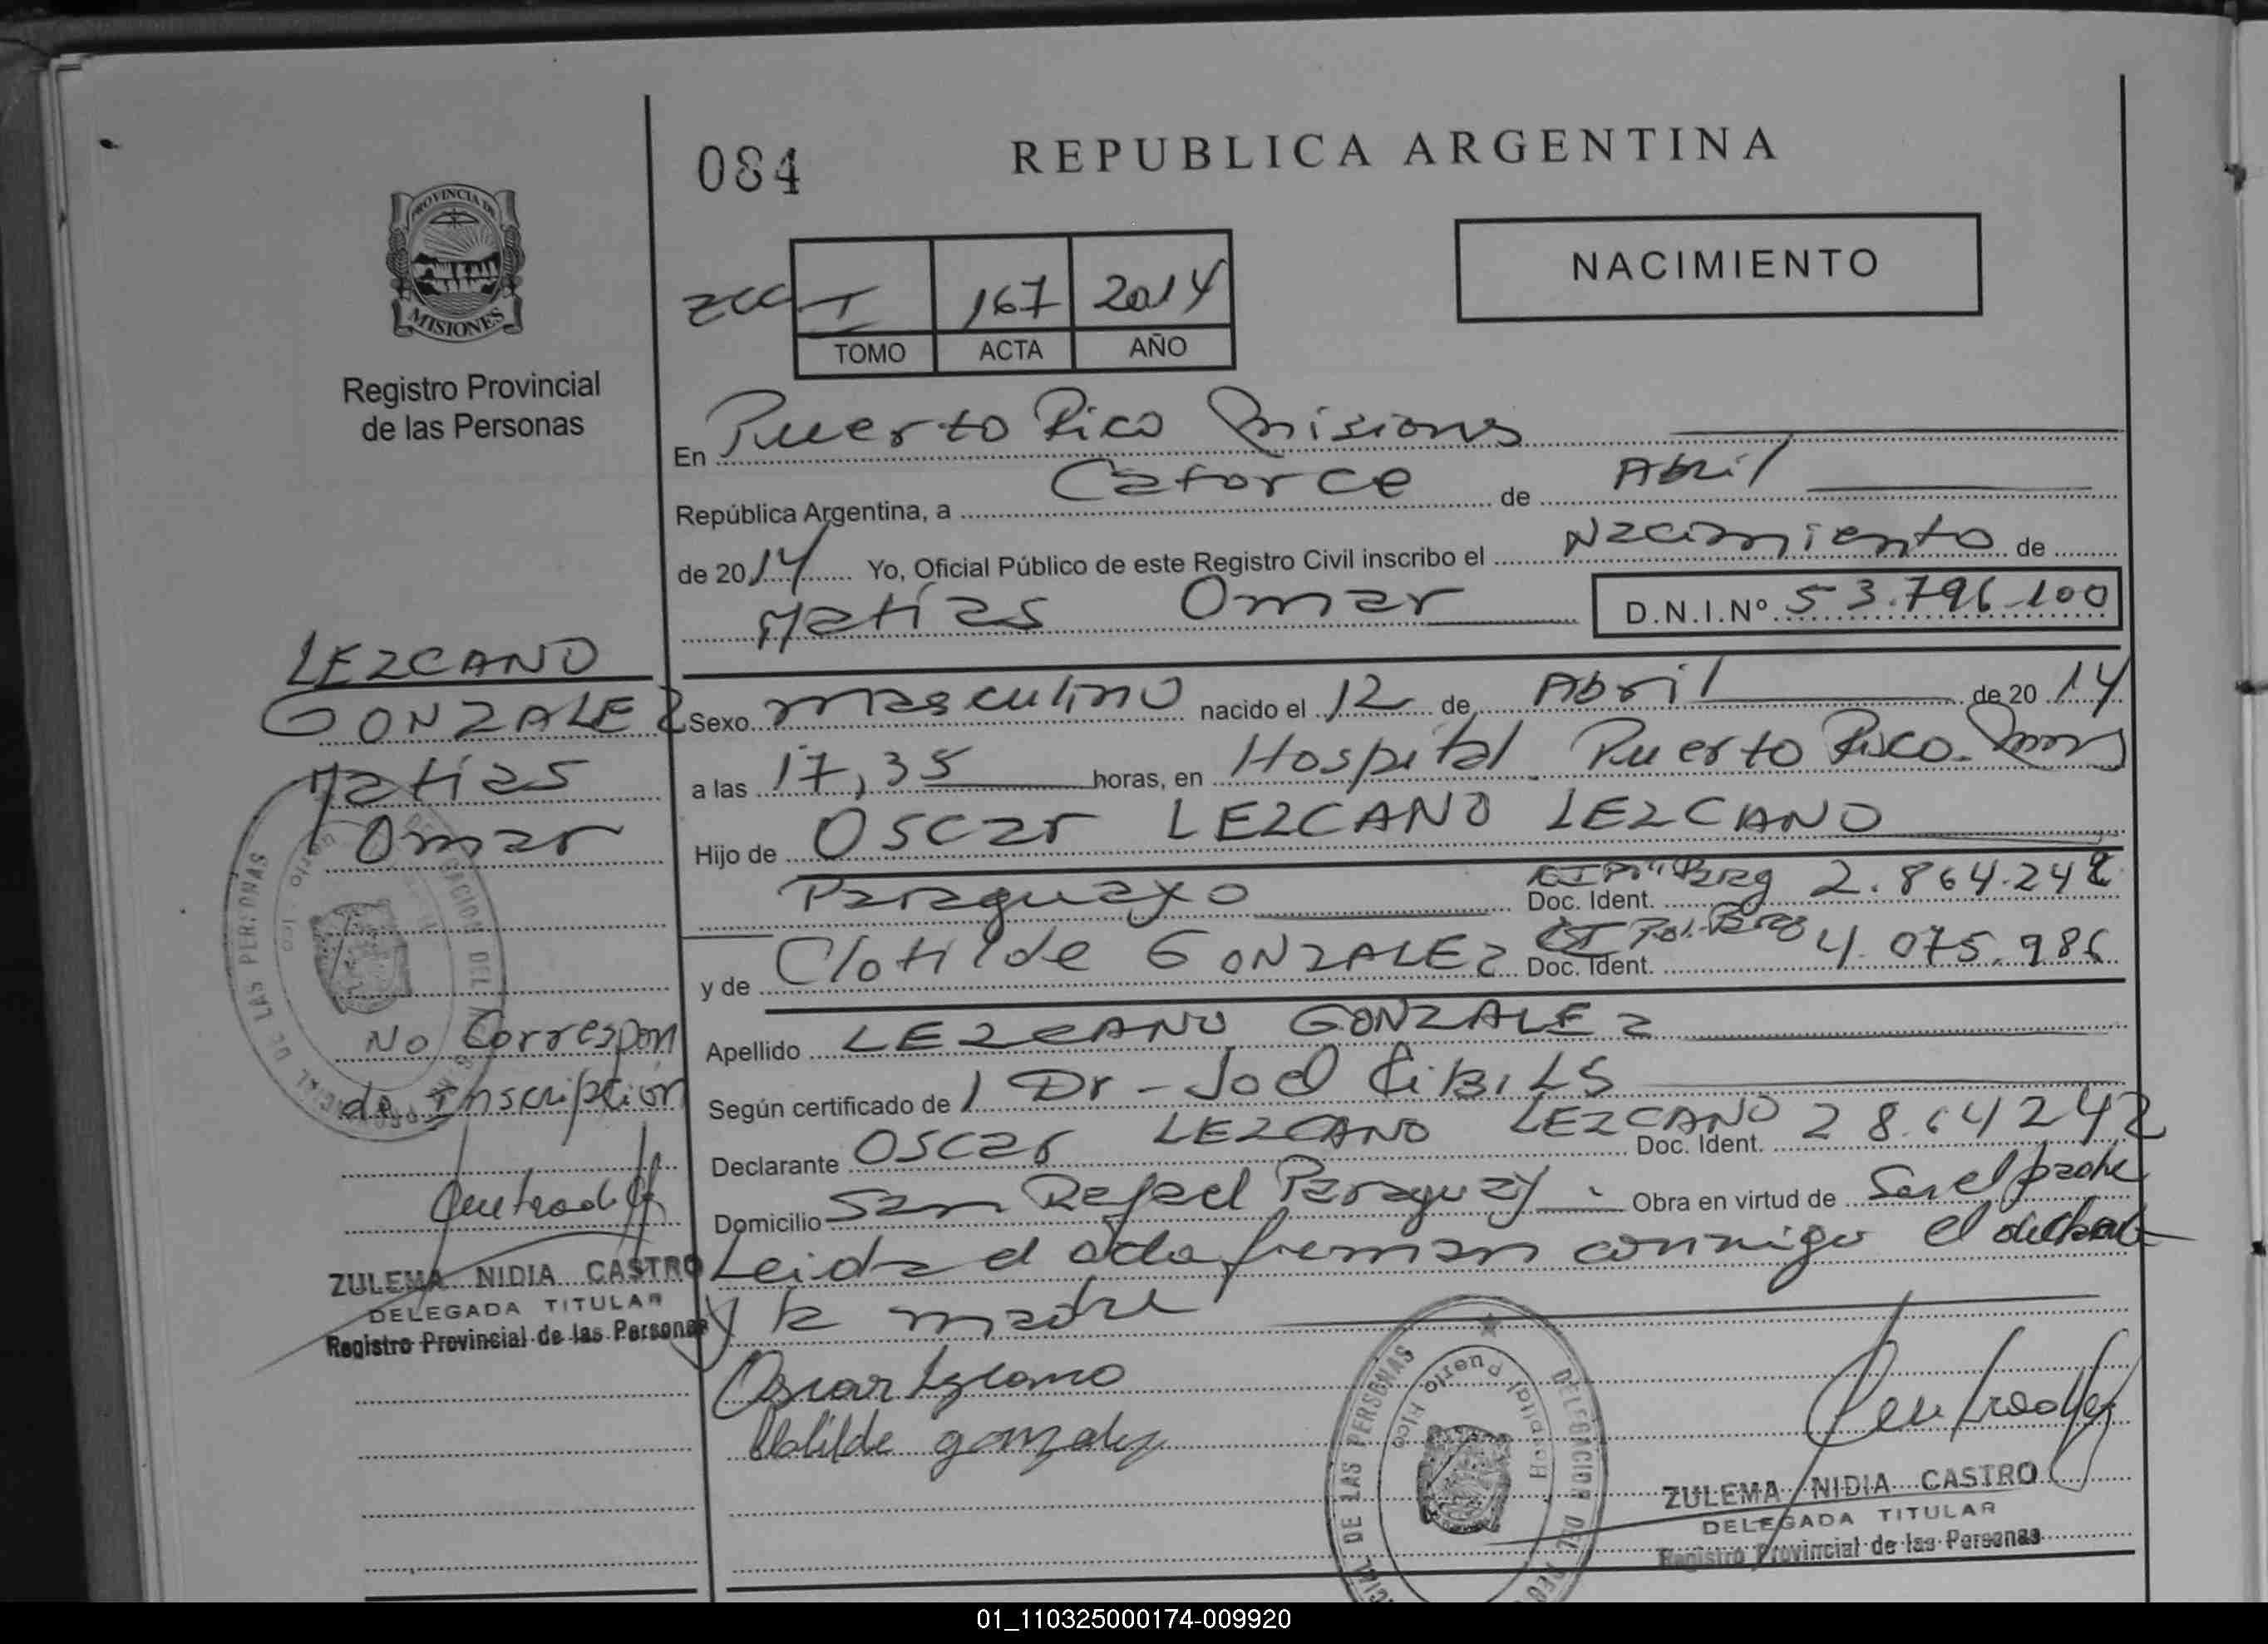 084
REPUBLICA ARGENTINA
PROVINCIA DE
MISIONES
Registro Provincial
de las Personas
I 167 2014
TOMO ACTA AÑO
NACIMIENTO
En Puerto Rico Misiones
República Argentina, a Catorce de Abril
de 2014 Yo, Oficial Público de este Registro Civil inscribo el Nacimiento de
Matías Omar D.N.I.Nº 53.796.100
LEZCANO
GONZALEZ
Matías
Omar
No Correspon
de Inscripción
ZULEMA NIDIA CASTRO
DELEGADA TITULAR
Registro Provincial de las Personas
Sexo masculino nacido el 12 de Abril de 2014
a las 17,35 horas, en Hospital Puerto Rico
Hijo de Oscar LEZCANO LEZCANO
Paraguayo Doc. Ident. 2.864.242
y de Clotilde GONZALEZ Doc. Ident. 4.075.986
Apellido LEZCANO GONZALEZ
Según certificado de Dr - Joel CIBILS
Declarante Oscar LEZCANO LEZCANO Doc. Ident. 2864242
Domicilio San Rafael Paraguay Obra en virtud de Ser el padre
Leida el acta firman conmigo el
y la madre
Oscar Lezcano
Clotilde gonzalez
DE LAS PERSONAS
DELEGACION DEL
Hospital Puerto Rico
ZULEMA NIDIA CASTRO
DELEGADA TITULAR
Registro Provincial de las Personas
01_110325000174-009920